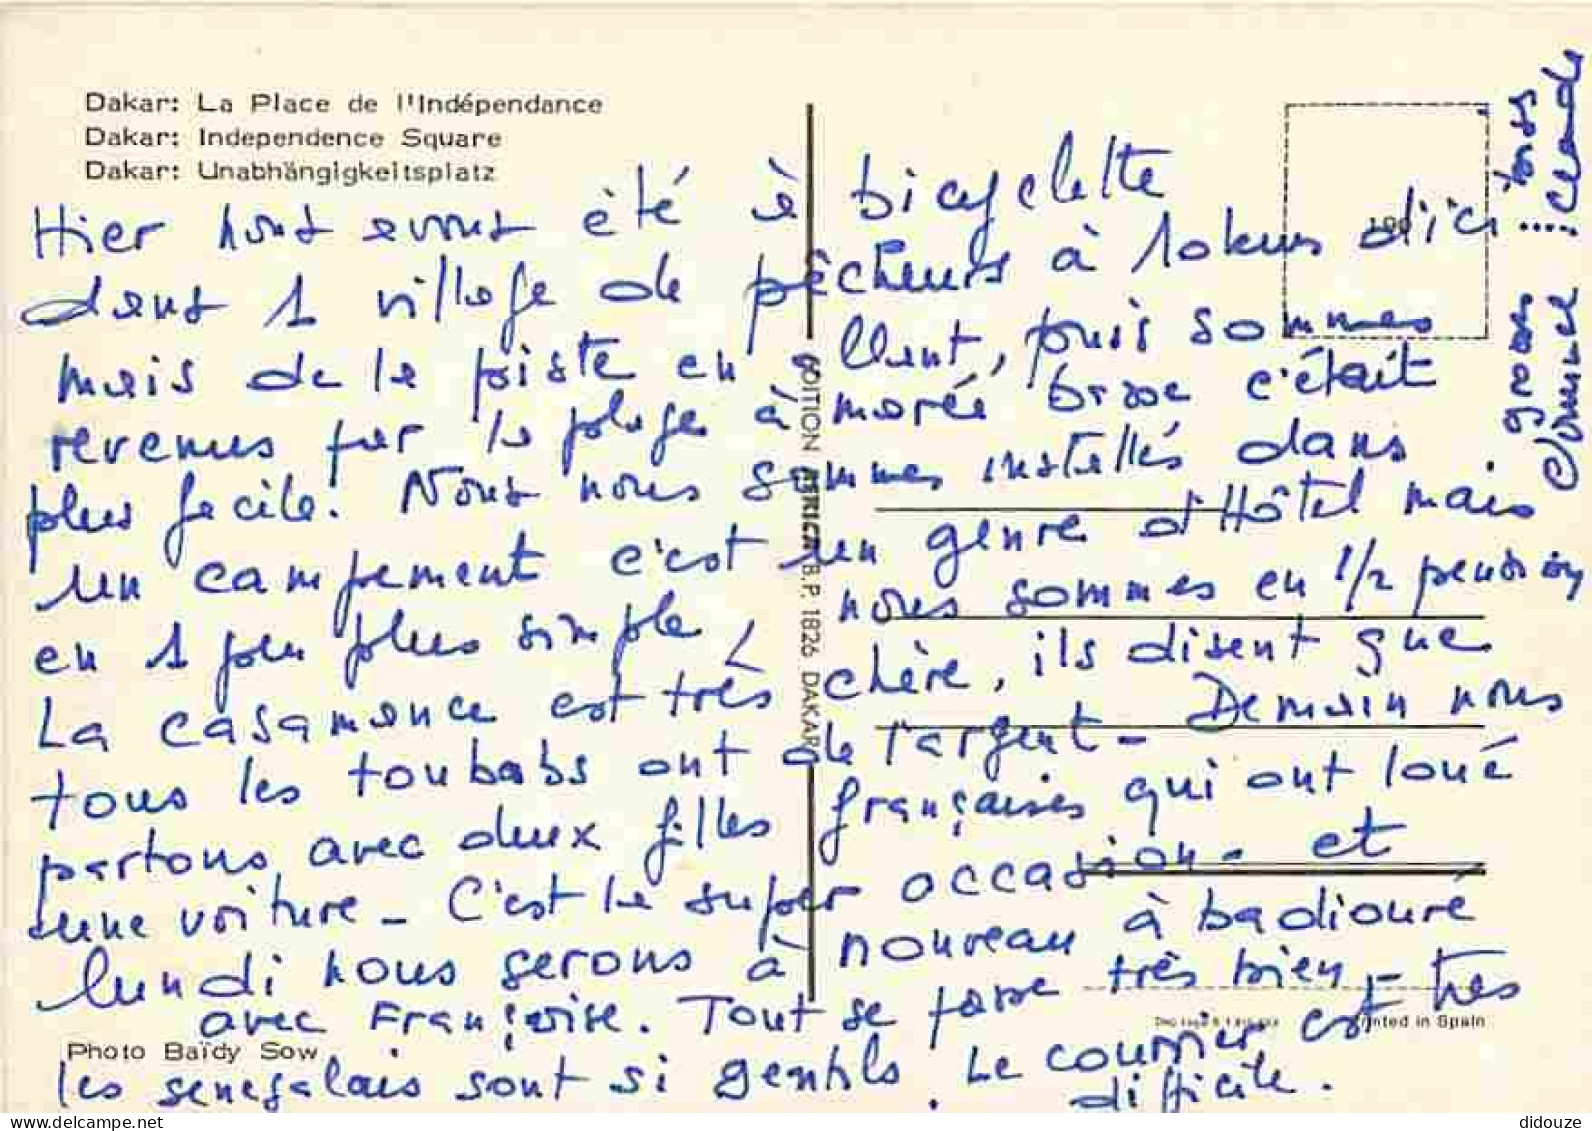 Dakar: La Place de l'Indépendance
Dakar: Independence Square
Dakar: Unabhängigkeitsplatz
Hier nous avons été à bicyclette
dans 1 village de pêcheurs à 10 kms d'ici
mais de la piste en allant, puis sommes
revenus par la plage à marée basse c'était
plus facile. Nous nous sommes installés dans
un campement c'est un genre d'Hôtel mais
en 1 peu plus simple, nous sommes en 1/2 pension
La casamance est très chère, ils disent que
tous les toubabs ont de l'argent - Demain nous
partons avec deux filles françaises qui ont loué
une voiture - C'est la super occasion - et
lundi nous serons à nouveau à badiouré
avec Françoise. Tout se passe très bien -
les senegalais sont si gentils. Le courrier est très
difficile.
grosses bises
Claude
Photo Baïdy Sow
EDITION AFRICA B.P. 1826 DAKAR
Printed in Spain
didouze